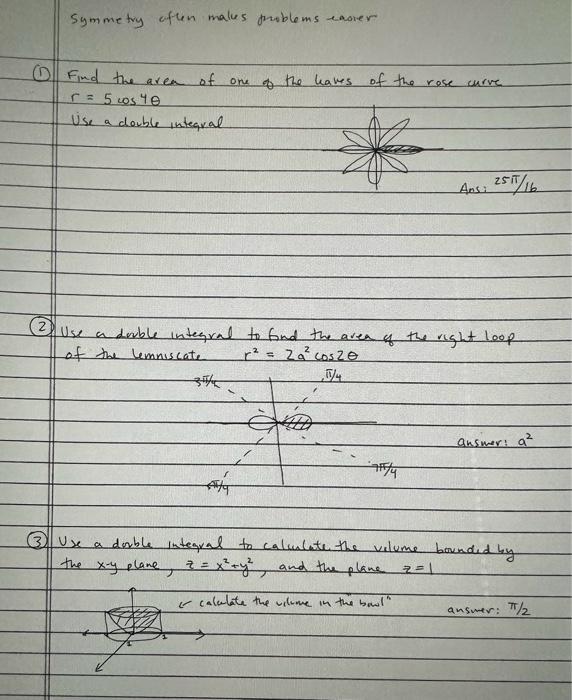 Symmetry often makes problems easier
① Find the area of one of the leaves of the rose curve
r = 5 cos 4θ
Use a double integral
Ans: 25π/16
② Use a double integral to find the area of the right loop
of the lemniscate r² = 2a² cos2θ
3π/4 π/4
answer: a²
7π/4
5π/4
③ Use a double integral to calculate the volume bounded by
the x-y plane, z = x²+y², and the plane z=1
calculate the volume in the "bowl"
answer: π/2